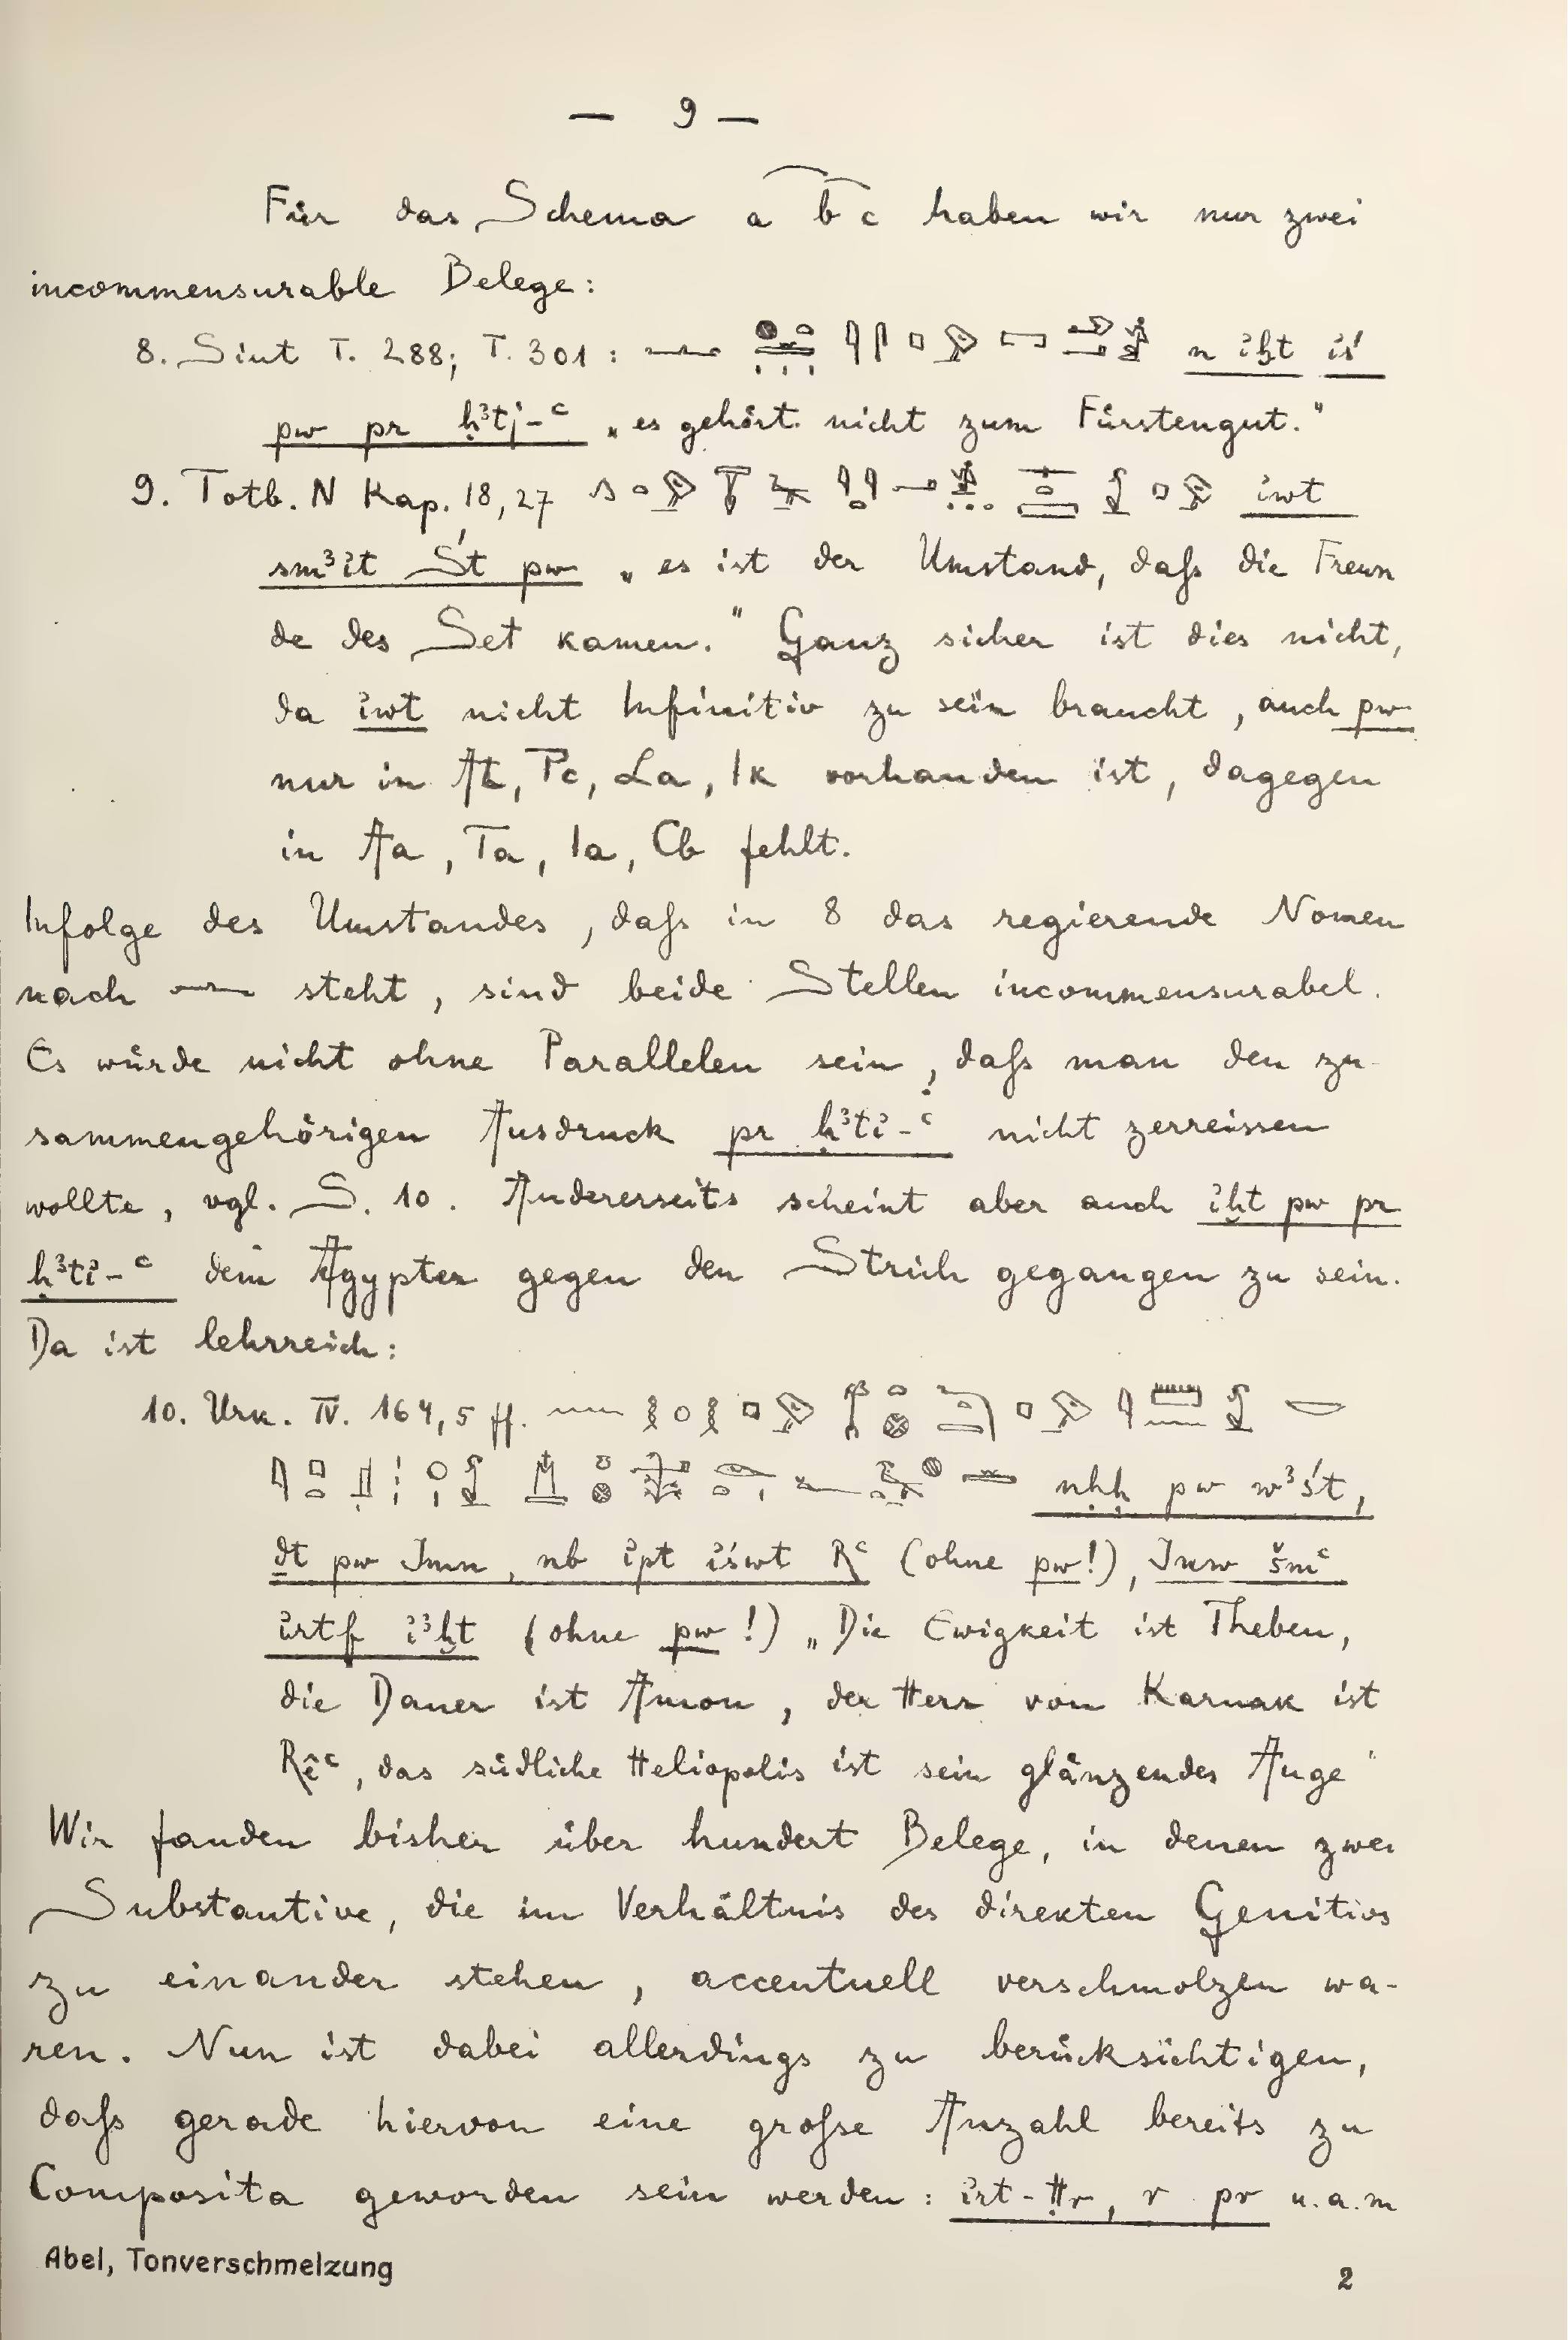 — 9 —
Für das Schema a b c haben wir nur zwei
incommensurable Belege:
8. Siut T. 288; T. 301 : n ỉḫt ỉś
pw pr ḥꜣtj-ꜥ „es gehört nicht zum Fürstengut."
9. Totb. N Kap. 18, 27 ỉwt
smꜣỉt Śt pw „es ist der Umstand, daß die Freun
de des Set kamen." Ganz sicher ist dies nicht,
da ỉwt nicht Infinitiv zu sein braucht, auch pw
nur in Pc, La, Ik vorhanden ist, dagegen
in Aa, Ta, Ia, Cb fehlt.
Infolge des Umstandes, daß in 8 das regierende Nomen
nach 𓂜 steht, sind beide Stellen incommensurabel.
Es würde nicht ohne Parallelen sein, daß man den zu-
sammengehörigen Ausdruck pr ḥꜣtỉ-ꜥ nicht zerreissen
wollte, vgl. S. 10. Andererseits scheint aber auch ỉḫt pw pr
ḥꜣtỉ-ꜥ dem Ägypter gegen den Strich gegangen zu sein.
Da ist lehrreich:
10. Urk. IV. 164, 5 ff.
nḥḥ pw wꜣśt,
ḏt pw Jmn, nb ỉpt ỉśwt Rꜥ (ohne pw!), Jnw šmꜥ
ỉrtf ỉꜣḫt (ohne pw!) „Die Ewigkeit ist Theben,
die Dauer ist Amon, der Herr von Karnak ist
Rēꜥ, das südliche Heliopolis ist sein glänzendes Auge"
Wir fanden bisher über hundert Belege, in denen zwei
Substantive, die im Verhältnis des direkten Genitivs
zu einander stehen, accentuell verschmolzen wa-
ren. Nun ist dabei allerdings zu berücksichtigen,
daß gerade hiervon eine große Anzahl bereits zu
Composita geworden sein werden: ỉrt-Ḥr, r pr u.a.m
Abel, Tonverschmelzung 2